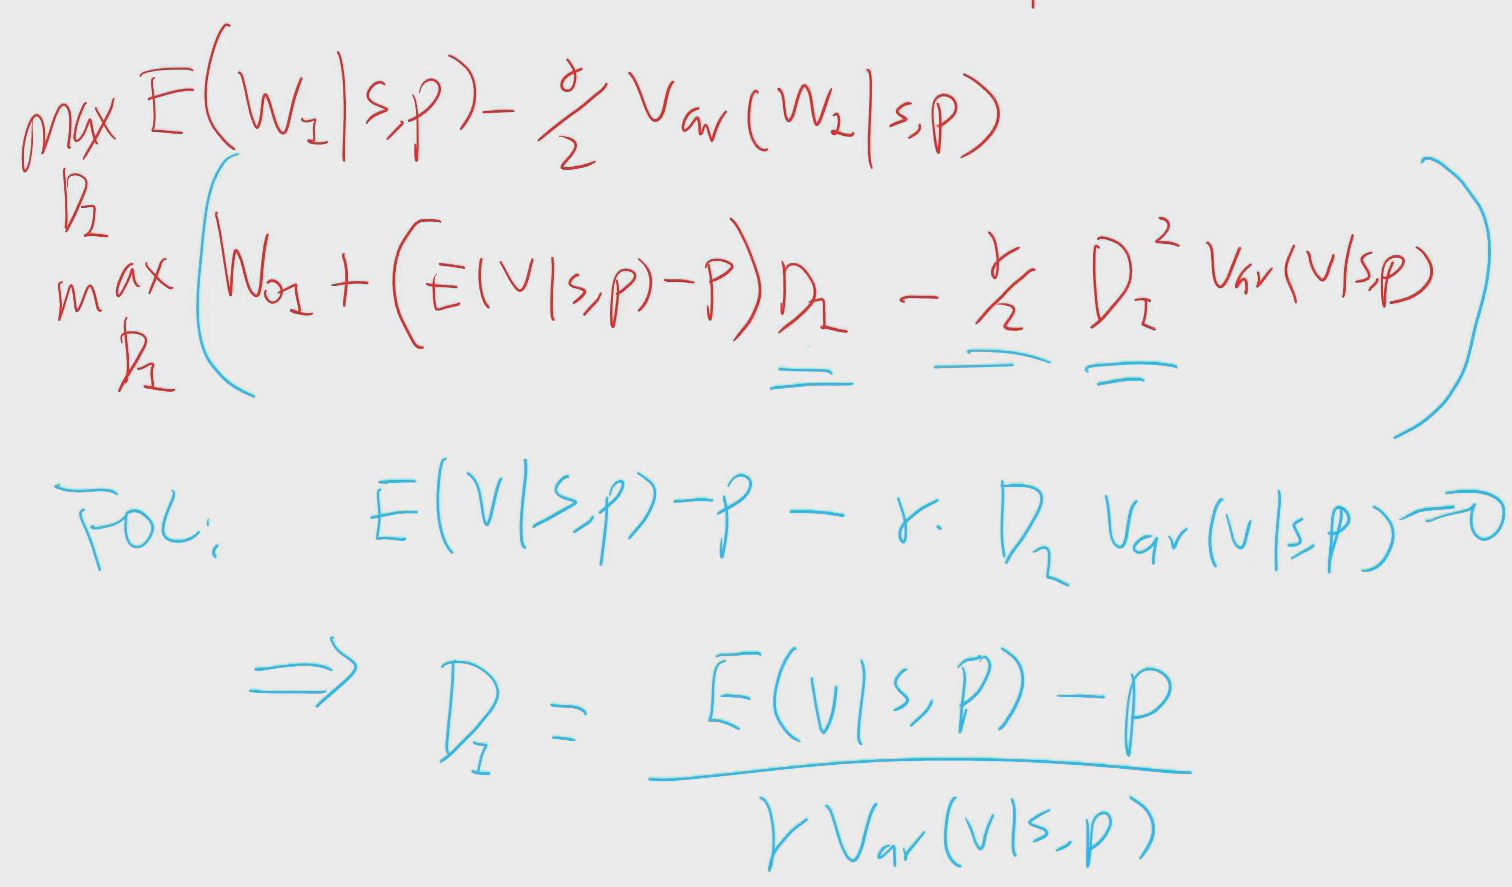 max E(W₁|s,p) - γ/2 Var(W₁|s,p)
D₁
max (W₀₁ + (E(V|s,p) - p) D₁ - γ/2 D₁² Var(V|s,p))
D₁
FOC: E(V|s,p) - p - γ. D₁ Var(V|s,p) = 0
⇒ D₁ = E(V|s,p) - p
γ Var(V|s,p)